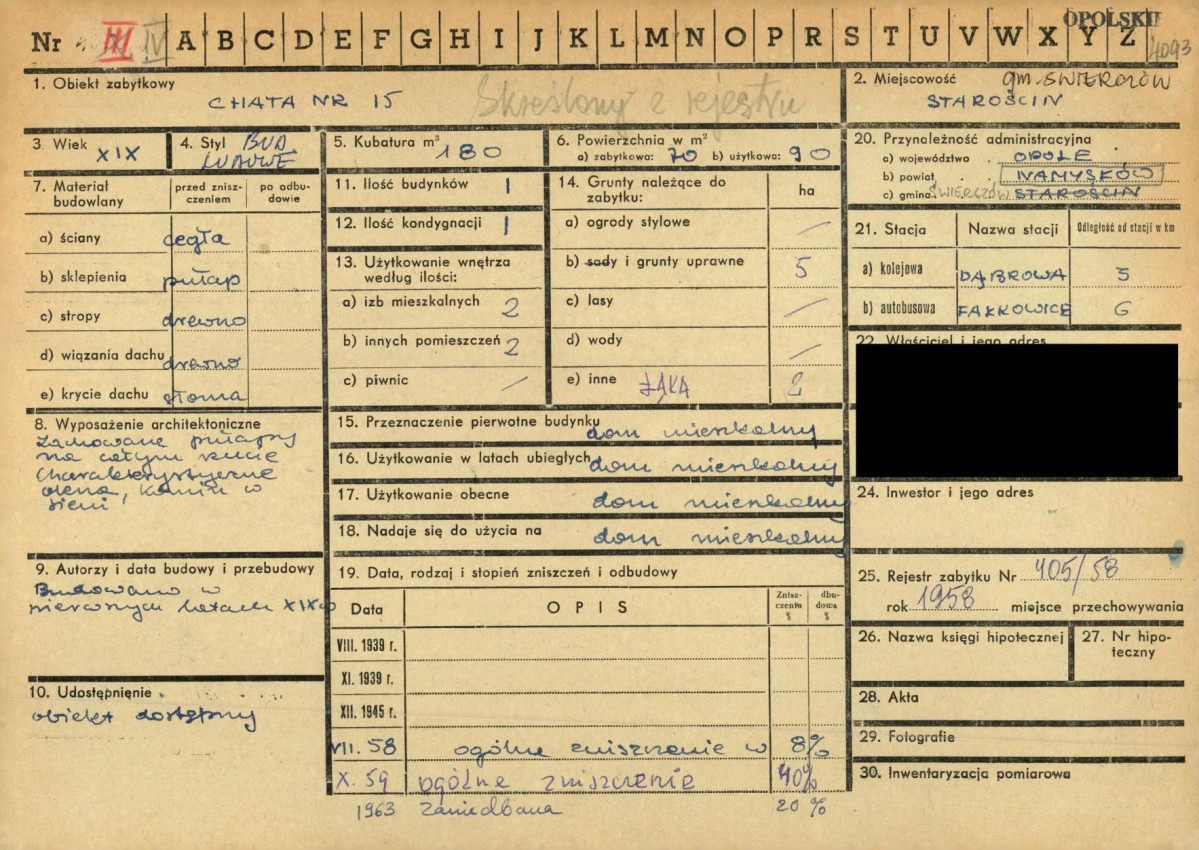 OPOLSKIE
Nr III IV A B C D E F G H I J K L M N O P R S T U V W X Y Z 4093
1. Obiekt zabytkowy
CHATA NR 15
Skreślony z rejestru
2. Miejscowość gm. ŚWIERCZÓW
STAROŚCIN
3. Wiek XIX
4. Styl BUD.
LUDOWE
5. Kubatura m³ 180
6. Powierzchnia w m²
a) zabytkowa: 70 b) użytkowa: 90
20. Przynależność administracyjna
a) województwo OPOLE
b) powiat NAMYSŁÓW
c) gmina ŚWIERCZÓW STAROŚCIN
7. Materiał budowlany
przed zniszczeniem
po odbudowie
a) ściany cegła
b) sklepienia pułap
c) stropy drewno
d) wiązania dachu drewno
e) krycie dachu słoma
11. Ilość budynków 1
12. Ilość kondygnacji 1
13. Użytkowanie wnętrza
według ilości:
a) izb mieszkalnych 2
b) innych pomieszczeń 2
c) piwnic —
14. Grunty należące do
zabytku:
ha
a) ogrody stylowe —
b) sady i grunty uprawne 5
c) lasy —
d) wody —
e) inne ŁĄKA 2
21. Stacja
Nazwa stacji
Odległość od stacji w km
a) kolejowa DĄBROWA 5
b) autobusowa FAŁKOWICE 6
22. Właściciel i jego adres
8. Wyposażenie architektoniczne
Zachowane pułapy
na całym rzucie
Charakterystyczne
okna, komin w
sieni
15. Przeznaczenie pierwotne budynku dom mieszkalny
16. Użytkowanie w latach ubiegłych dom mieszkalny
17. Użytkowanie obecne dom mieszkalny
18. Nadaje się do użycia na dom mieszkalny
24. Inwestor i jego adres
9. Autorzy i data budowy i przebudowy
Budowano w
pierwszych latach XIX w
10. Udostępnienie
obiekt dostępny
19. Data, rodzaj i stopień zniszczeń i odbudowy
Data
OPIS
Zniszczenia %
dbudowa %
VIII. 1939 r.
XI. 1939 r.
XII. 1945 r.
VII. 58 ogólne zniszczenie w 8%
X. 59 ogólne zniszczenie 40%
1963 zaniedbana 20 %
25. Rejestr zabytku Nr 405/58
rok 1958 miejsce przechowywania
26. Nazwa księgi hipotecznej
27. Nr hipoteczny
28. Akta
29. Fotografie
30. Inwentaryzacja pomiarowa